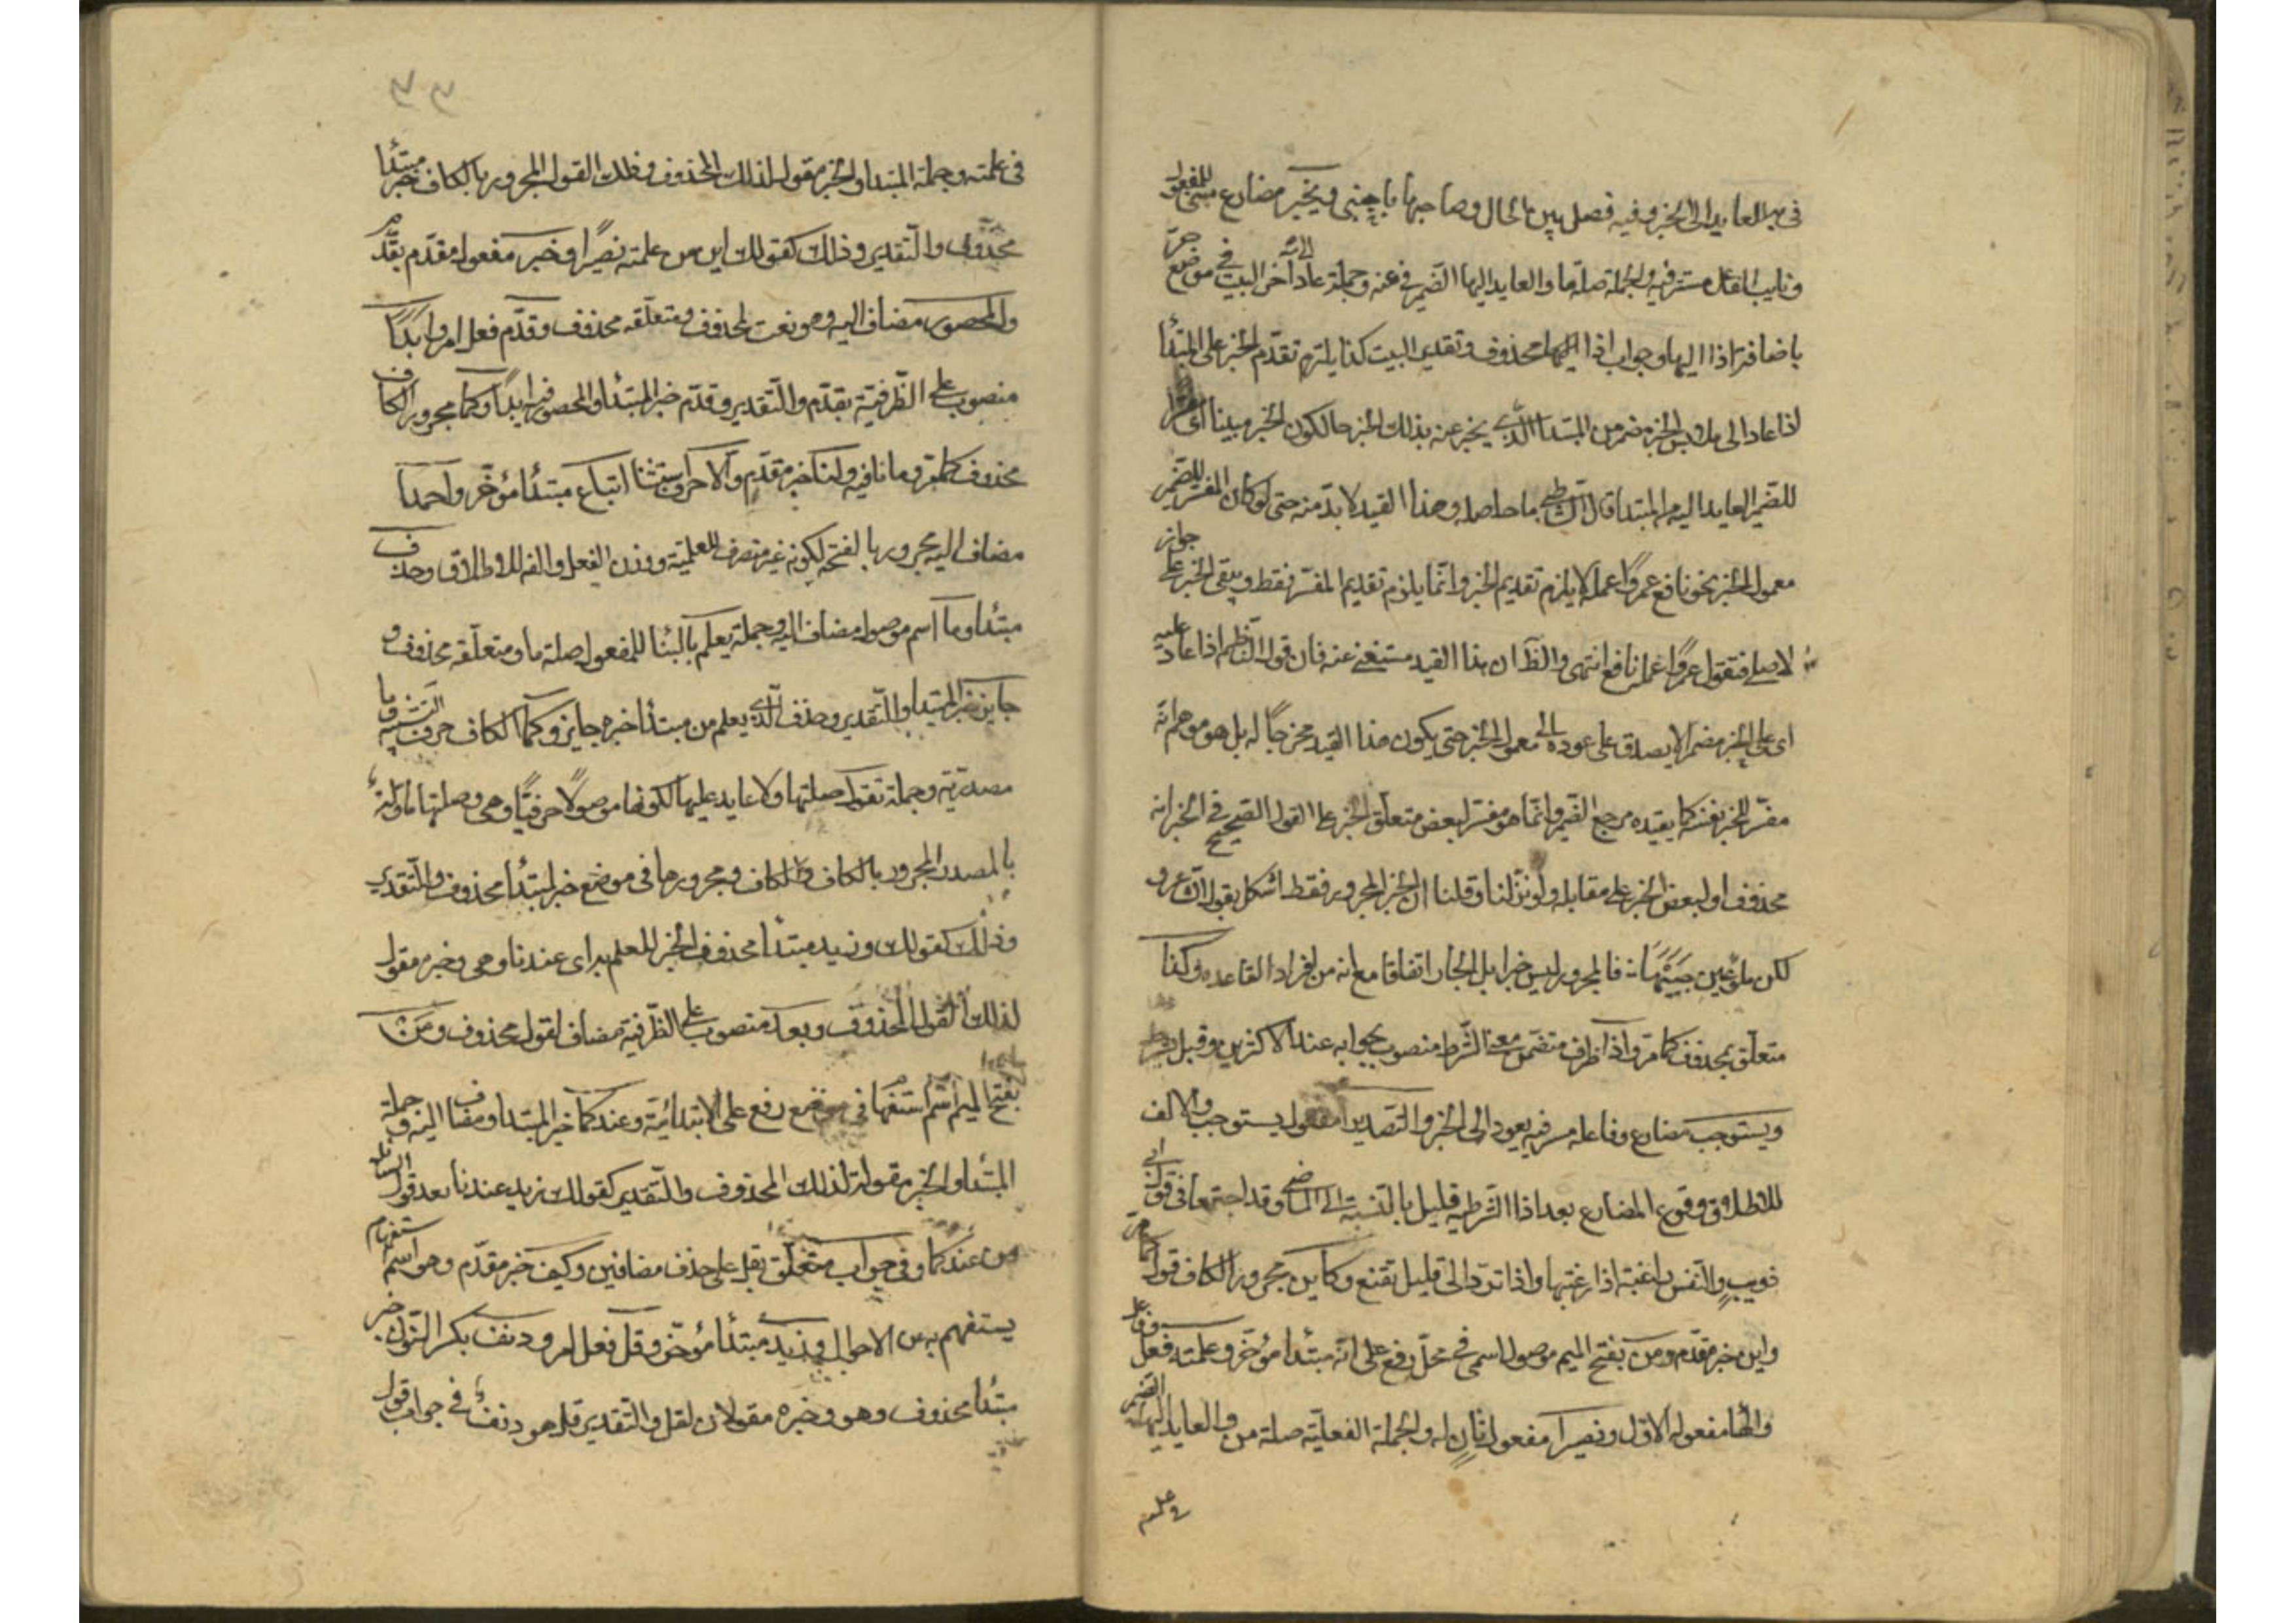 في به العايد الى الخبر وفيه فصل بين الحال وصاحبها باجنبي ويخبر مضارع مبني للمفعول
ونايب الفاعل مستتر فيه والجملة صلة ما والعايد اليها الضمير في عنه وجملة عاد الى آخر البيت في موضع جر
باضافة اذا اليها وجواب اذا محذوف وتقدير البيت كذا يلتزم تقدم الخبر على المبتدأ
اذا عاد الى ملابس الخبر مضمر من المبتدأ الذي يخبر عنه بذلك الخبر حالكون الخبر مبينا اى مفسرا
للضمير العايد اليه من المبتدا قال الشاطبي ما حاصله وهذا القيد لا بد منه حتى لو كان المفسر للضمير
معمول الخبر نحو نافع عمروًا عمله لا يلزم تقديم الخبر وانما يلزم تقديم المفسر فقط ويبقى الخبر على جواز
الاصل فتقول عمروًا عمله نافع انتهى والظ ان هذا القيد مستغنى عنه فان قول الناظم اذا عاد عليه
اى على الخبر مضمر لا يصدق على عوده الى معمول الخبر حتى يكون هذا القيد مخرجًا له بل هو موهم انه
مفسر للخبر نفسه كما يفيده مرجع الضمير وانما هو مفسر لبعض متعلق الخبر على القول الصحيح في الخبر انه
محذوف او لبعض الخبر على مقابله ولو تنزلنا وقلنا ان الخبر المجرور فقط اشكل بقول الشاعر و
لكن ملؤ عين حبيبها ت فالمجرور ليس خبرا بل الجار اتفاقا مع انه من افراد القاعده وكذا
متعلق بمحذوف كما مر واذا ظرف متضمن معنى الشرط منصوب بجوابه عند الاكثرين وقبل بشرط
ويستوجب مضارع وفاعله مستتر فيه يعود الى الخبر والتصديرا مفعول يستوجب والالف
للاطلاق ووقوع المضارع بعد اذا الشرطيه قليل بالنسبة الى الماضى وقد اجتمعا في قول ابى
ذويب والنفس راغبة اذا رغبتها واذا ترد الى قليل تقنع وكاين مجرور الكاف قول كما مر
واين خبر مقدم ومن بفتح الميم موصول اسمى في محل رفع على انه مبتدأ مؤخر وعلمته فعل وفاعل
والها مفعوله الاول ونصيرا مفعول ثان له والجملة الفعلية صلة من والعايد اليها الضمير
في علمته
في علمته وجملة المبتدا والخبر مقول لذلك المحذوف وذلك القول المجرور بالكاف خبر مبتدأ
محذوف والتقدير وذلك كقولك اين من علمته نصيرًا وخبر مفعول مقدم بقدم
والمحصور مضاف اليه وهو نعت لمحذوف ومتعلقه محذوف وقدم فعل امر وابدًا
منصوب على الظرفية بقدم والتقدير وقدم خبر المبتدأ المحصور فيه ابدًا وكما مجرور الكاف
محذوف كما مر وما نافيه ولنا خبر مقدم والا حرف استثنا اتباع مبتدأ مؤخر واحمدا
مضاف اليه مجرور بالفتحه لكونه غير منصرف للعلمية ووزن الفعل والفه للاطلاق وحذف
مبتدأ وما اسم موصول مضاف اليه وجملة يعلم بالبنا للمفعول صلة ما ومتعلقه محذوف و
جايز خبر المبتدأ والتقدير وحذف الذي يعلم من مبتدأ خبره جايز وكما الكاف حرف التشبيه وما
مصدرية وجملة تقول صلتها ولا عايد عليها لكونها موصولًا حرفيًا وهى وصلتها ماولة
بالمصدر المجرور بالكاف والكاف ومجرورها في موضع خبر لمبتدأ محذوف والتقدير
وذلك كقولك وزيد مبتدأ محذوف الخبر للعلم به اى عندنا وهى وخبره مقول
لذلك القول المحذوف وبعد منصوب على الظرفية مضاف لقول محذوف ومَن
بفتح الميم اسم استفهام في موضع رفع على الابتدائية وعندكما خبر المبتدأ ومضاف اليه وجملة
المبتدأ والخبر مقولة لذلك المحذوف والتقدير كقولك زيد عندنا بعد قول السائل
من عندكما وفي جواب متعلق بقل على حذف مضافين وكيف خبر مقدم وهو اسم استفهام
يستفهم به عن الاحوال وزيد مبتدأ مؤخر وقل فعل امر ودنف بكسر النون خبر
مبتدأ محذوف وهو وخبره مقولان لقل والتقدير قل هو دنف في جواب قول